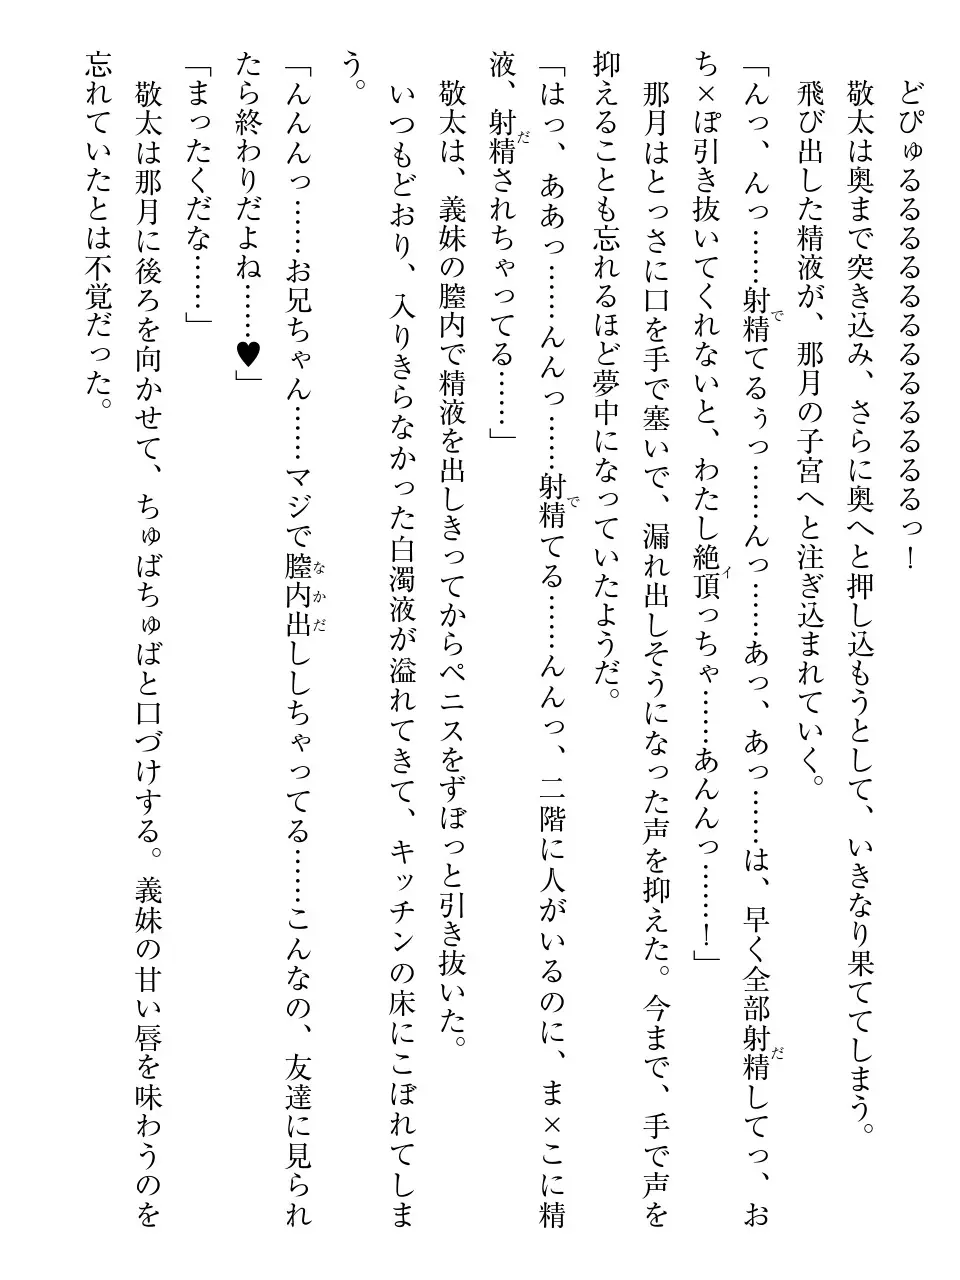 どぴゅるるるるるるるるるるるっ！
敬太は奥まで突き込み、さらに奥へと押し込もうとして、いきなり果ててしまう。
飛び出した精液が、那月の子宮へと注ぎ込まれていく。
「んっ、んっ……射精てるぅっ……んっ……あっ、あっ……は、早く全部射精してっ、お
ち×ぽ引き抜いてくれないと、わたし絶頂っちゃ……あんんっ……！」
那月はとっさに口を手で塞いで、漏れ出しそうになった声を抑えた。今まで、手で声を
抑えることも忘れるほど夢中になっていたようだ。
「はっ、ああっ……んんっ……射精てる……んんっ、二階に人がいるのに、ま×こに精
液、射精されちゃってる……」
敬太は、義妹の膣内で精液を出しきってからペニスをずぼっと引き抜いた。
いつもどおり、入りきらなかった白濁液が溢れてきて、キッチンの床にこぼれてしま
う。
「んんんっ……お兄ちゃん……マジで膣内出ししちゃってる……こんなの、友達に見られ
たら終わりだよね……♥」
「まったくだな……」
敬太は那月に後ろを向かせて、ちゅばちゅばと口づけする。義妹の甘い唇を味わうのを
忘れていたとは不覚だった。